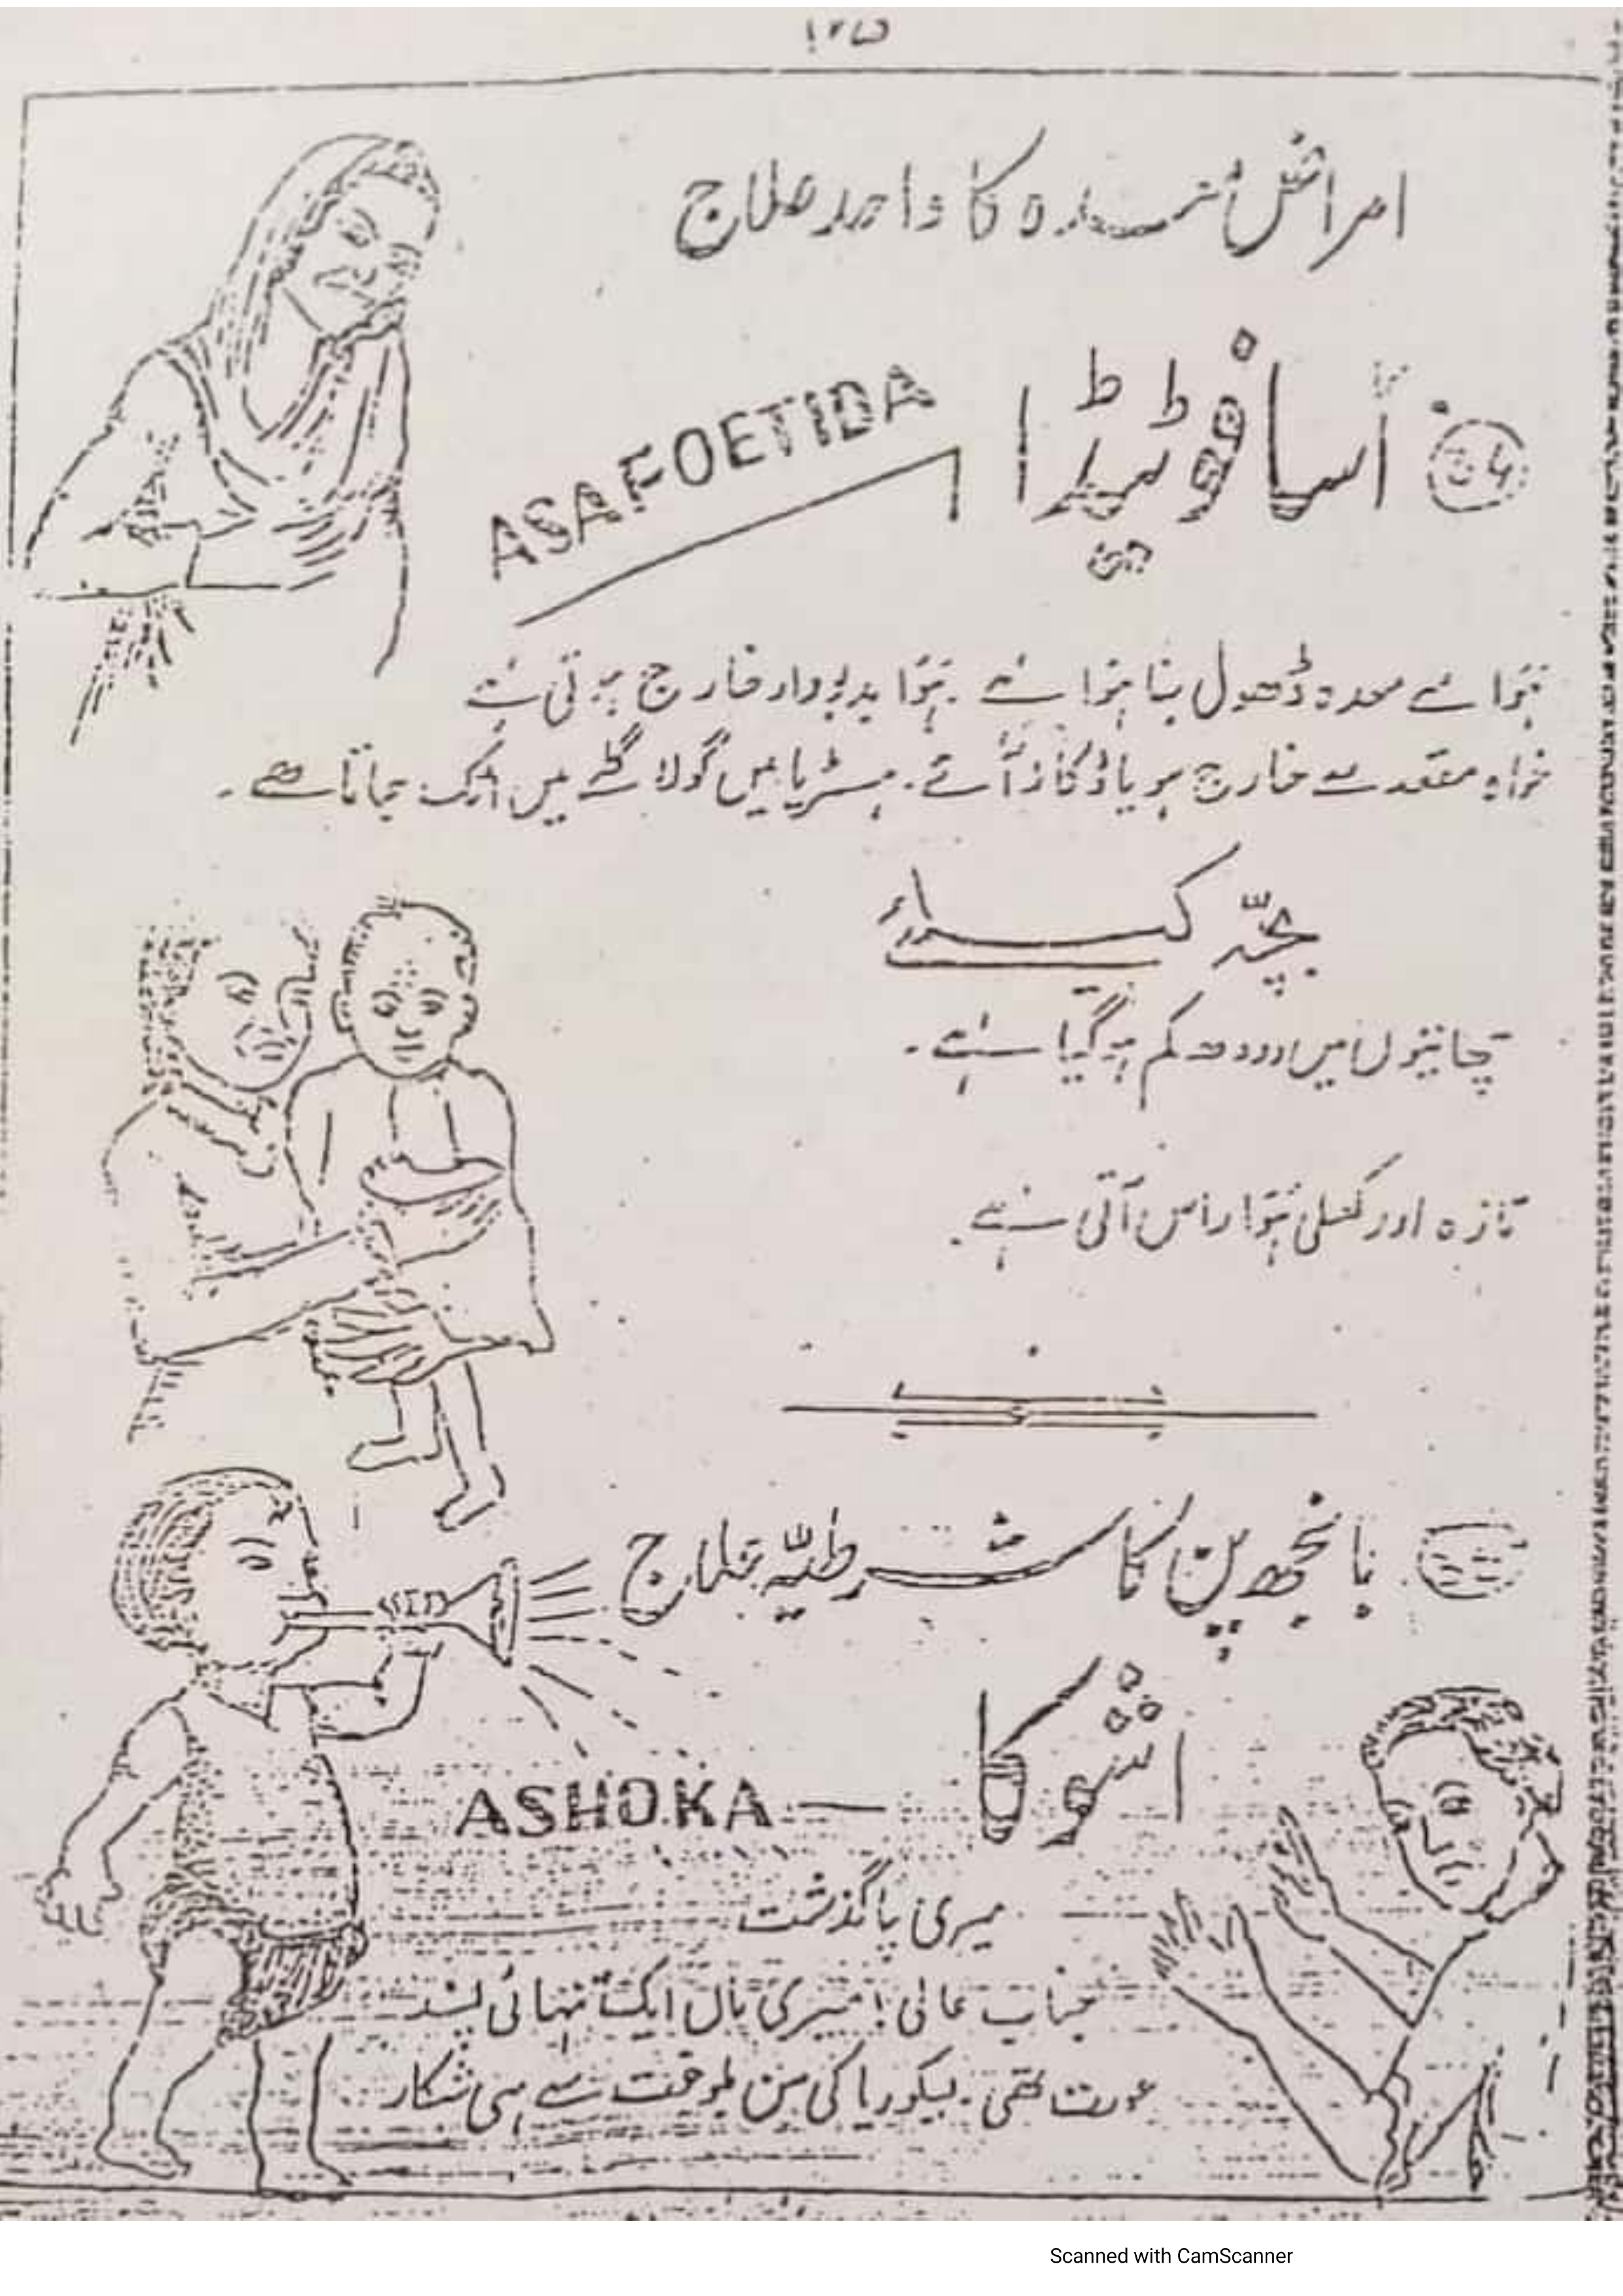 امراض معدہ کا واحد علاج
اسافوٹیڈا
ASAFOETIDA
ہوا سے معدہ ڈھول بنا ہوا ہے۔ ہوا بدبودار خارج ہوتی ہے
خواہ مقعد سے خارج ہو یا ڈکار آئے۔ ہسٹریا میں گولا گلے میں اٹک جاتا ہے۔
بچہ کیلئے
چھاتیوں میں دودھ کم ہو گیا ہے۔
تازہ اور کھلی ہوا راس آتی ہے۔
بانجھ پن کا شرطیہ علاج
اشوکا
— ASHOKA
میری
جناب عالی! میری ماں ایک تنہائی پسند
عورت تھی۔ لیکوریا کی سن بلوغت سے ہی شکار
Scanned with CamScanner